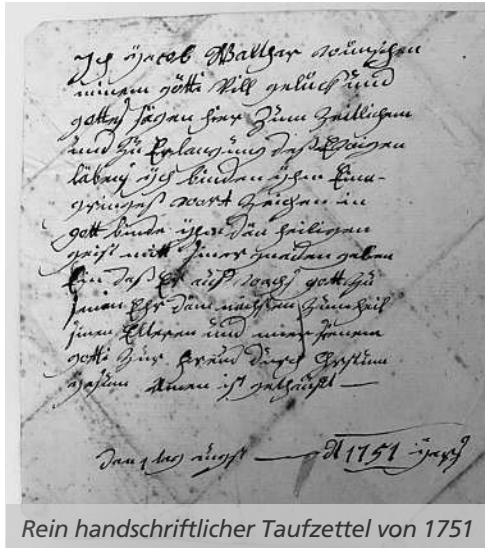 Ich Jacob Walther wünschen
minem götti Vill gelück und
gottes sägen hier zum Zeitlichem
und zu Erlangung deß Ewigen
läbens ich binden ihm Eina
gringes wort Zeichen in
gott binde ihm dän heiligen
geist mitt siner gnaden gaben
Ein daß Er auf wachs gott zu
sinen Ehr däm nächsten zum heil
sinen Elteren und mier sienem
götti zur freud durch Christum
Jesum Amen ist gethaufft —
den tag augst — A 1751 Jars
Rein handschriftlicher Taufzettel von 1751